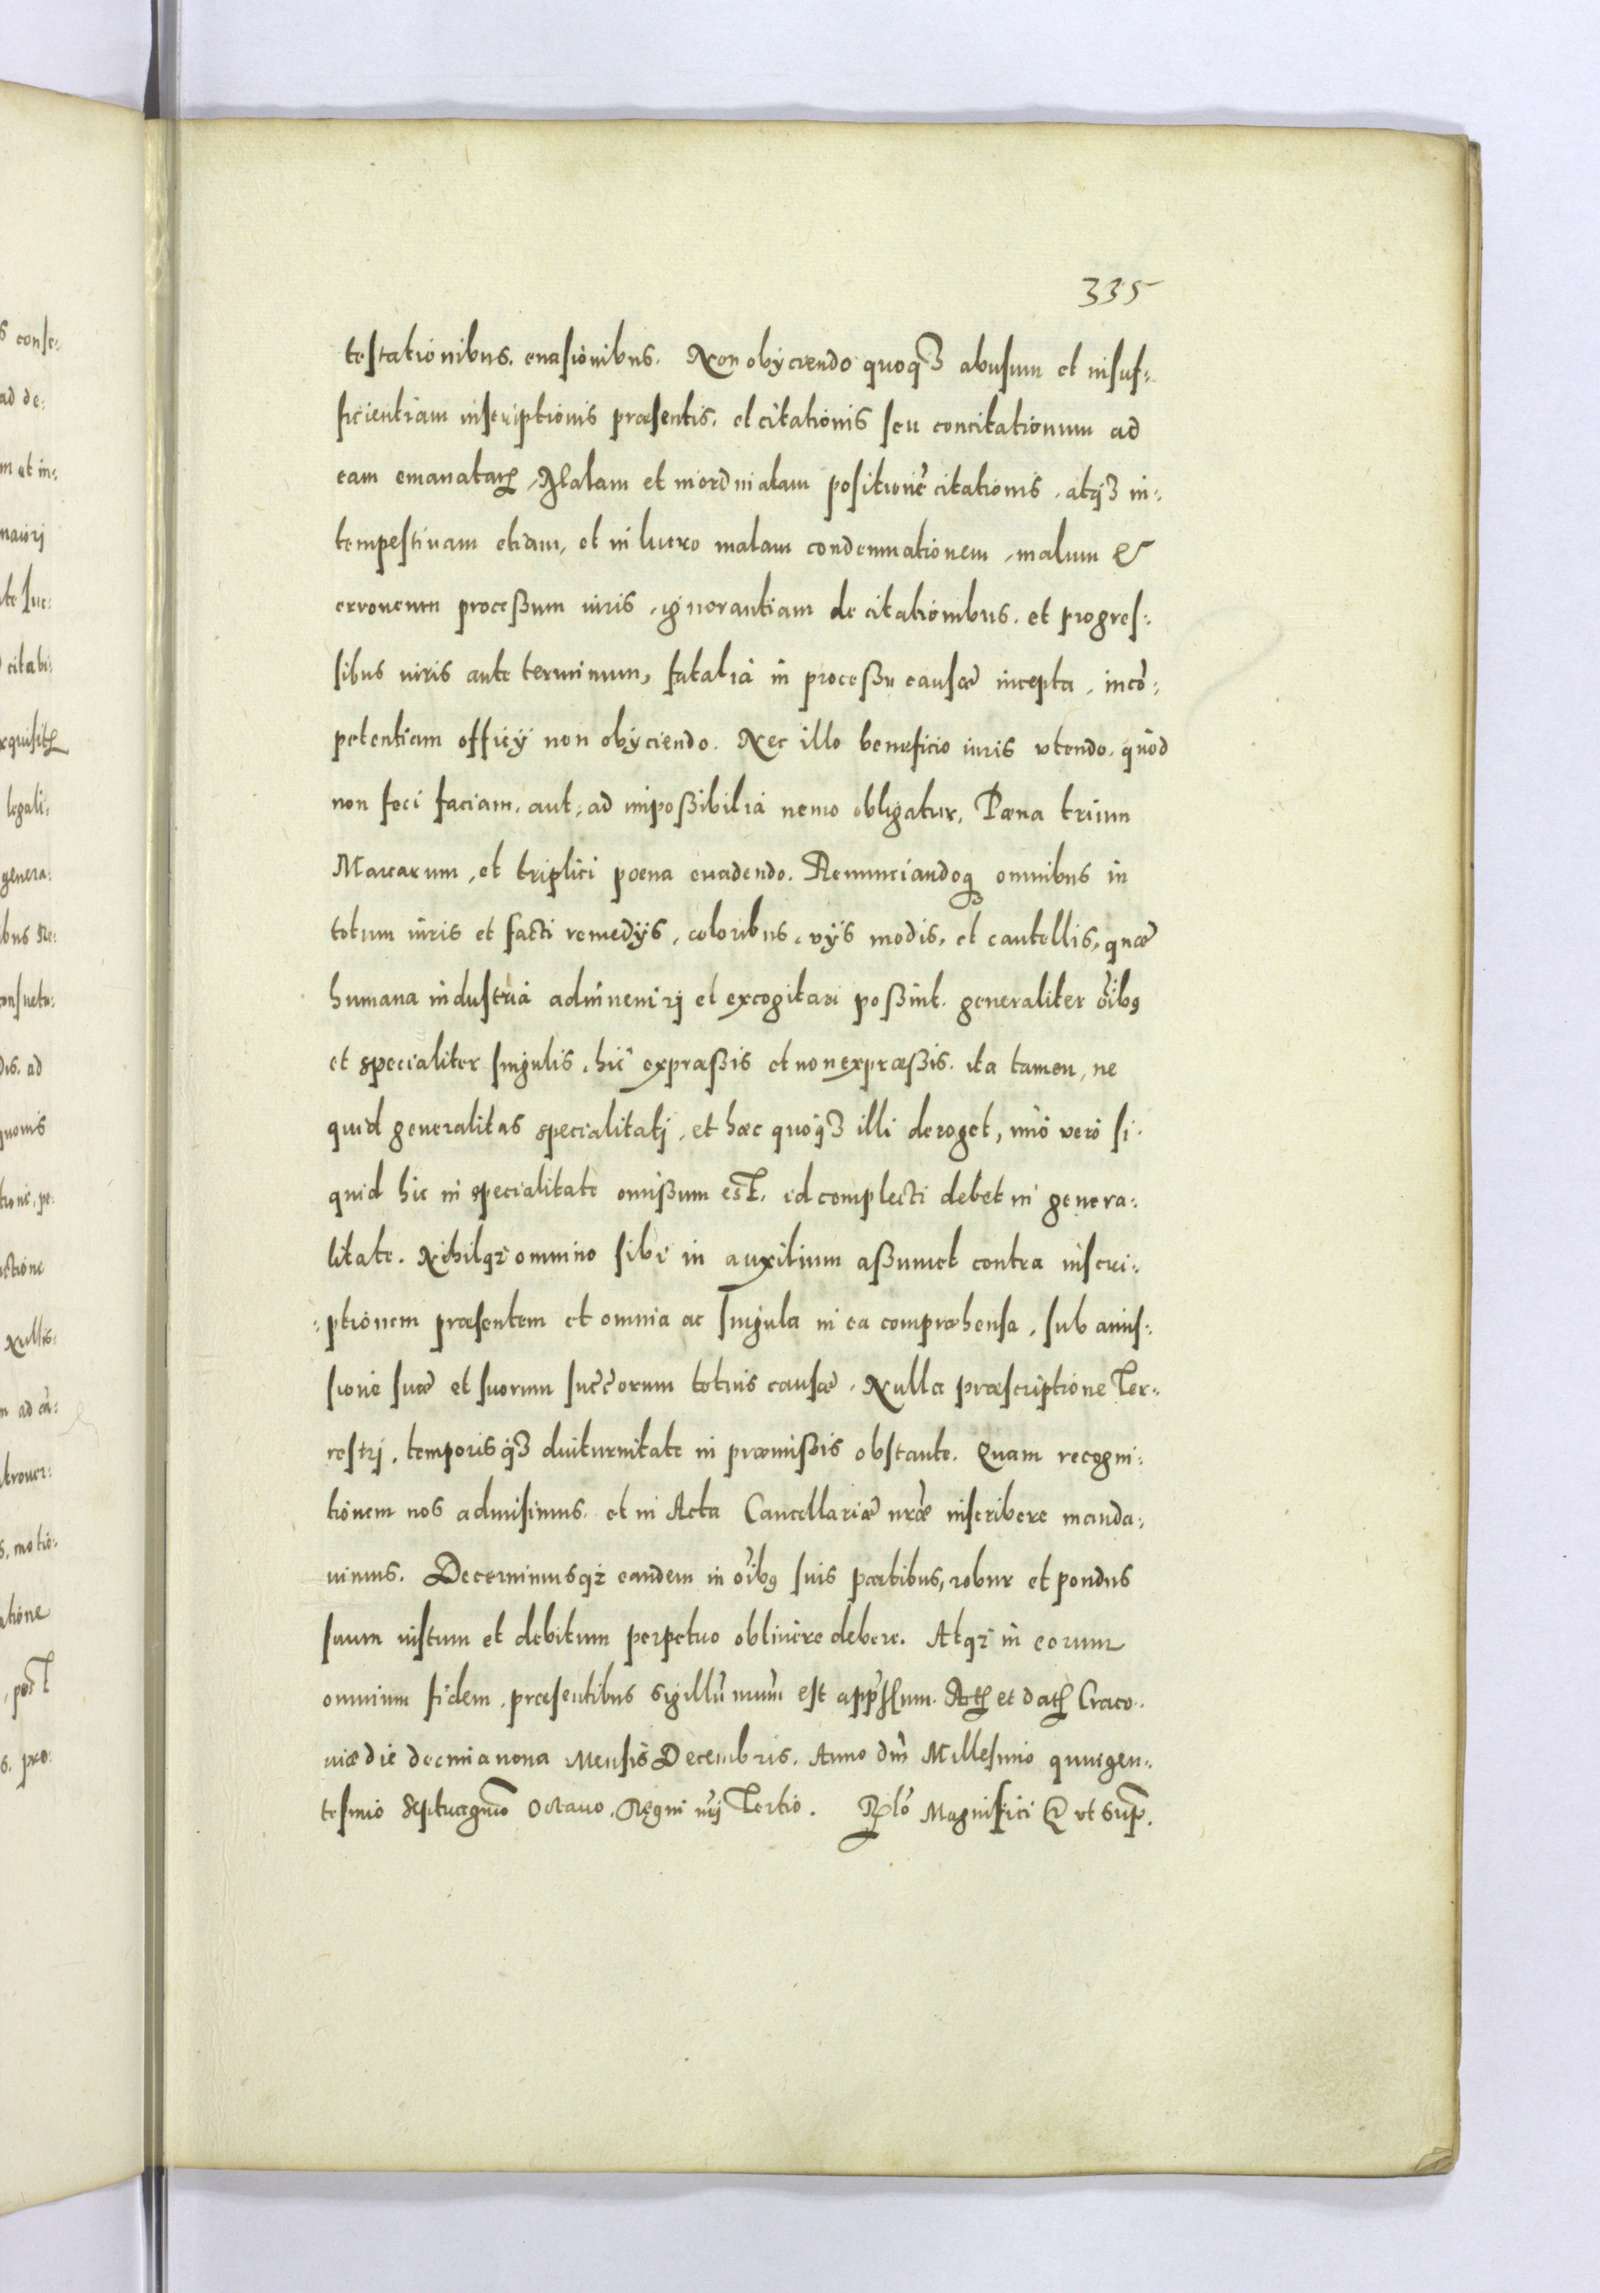 335
testationibus. euasionibus. Non obÿciendo quoq3 abusum et insuf-
ficientiam inscriptionis præsentis. et citationis seu concitationum ad
eam emanatarꝝ, Malam et inordinatam positionẽ citationis, atq3 in-
tempestiuam etiam, et in lucro malam condemnationem, malum &
erroneum proceßum iuris, ignorantiam de citationibus. et progres-
sibus iuris ante terminum, fatalia in proceßu causæ incepta, incõ-
petentiam officÿ non obÿciendo. Nec illo beneficio iuris vtendo. quod
non feci faciam. aut, ad impoßibilia nemo obligatur, Pæna trium
Marcarum, et triplici poena euadendo. Renunciandoq3 omnibus in
totum iuris et facti remedÿs, coloribus, vÿs modis, et cautellis, quæ
humana industria adinuenirj et excogitari poßint. generaliter oĩbꝯ
et specialiter singulis, hic expræßis et non expræßis. ita tamen, ne
quid generalitas specialitatj, et hæc quoq3 illi deroget, imò vero si
quid hic in specialitate omißum est, id complecti debet in genera-
litate. Nihilqꝫ omnino sibi in auxilium aßumet contra inscri-
-ptionem præsentem et omnia ac singula in ea compræhensa, sub amis-
sione suæ et suorum succorum totius causæ, Nulla præscriptione Ter-
restrj, temporisq3 diuturnitate in præmißis obstante. Quam recogni-
tionem nos admisimus. et in Acta Cancellariæ nræ inscribere manda-
uimus. Decernimusqꝫ eandem in oĩbꝯ suis partibus, robur et pondus
suum iustum et debitum perpetuo obtinere debere. Atqꝫ in eorum
omnium fidem, præsentibus sigillũ nrum est appressum. Actꝝ et datꝝ Craco-
uiæ die decmia nona Mensis Decembris. Anno dñi Millesimo quingen-
tesimo Septuagmo Octauo. Regni nrj Tertio. Rlo Magnifici & vt Supr.